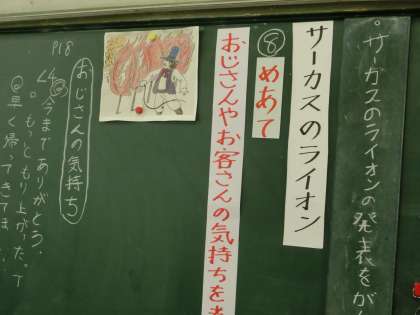 。サーカスのライオンの発表をが
サーカスのライオン
⑧
めあて
おじさんやお客さんの気持ちを
P18
おじさんの気持ち
今までありがとう。
もっともり上がった。
早く帰ってきて